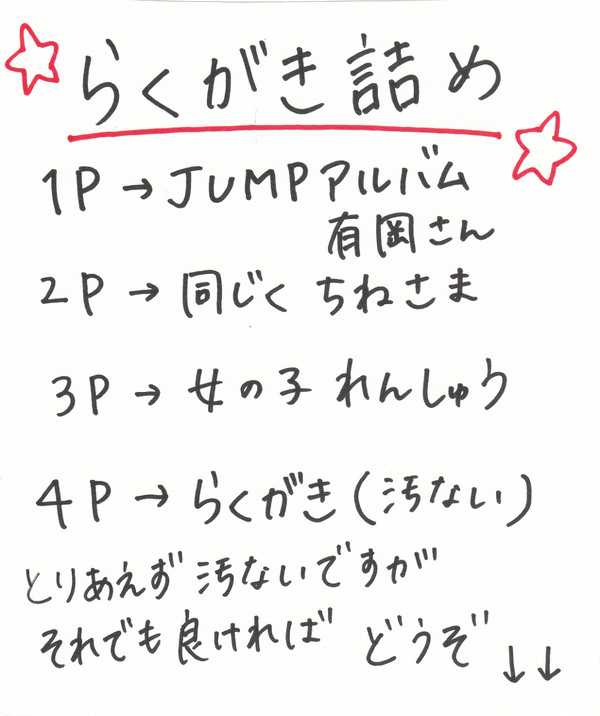 らくがき詰め
1P→JUMPアルバム
有岡さん
2P→同じく ちねさま
3P→女の子 れんしゅう
4P→らくがき(汚ない)
とりあえず 汚ないですが
それでも良ければ どうぞ↓↓